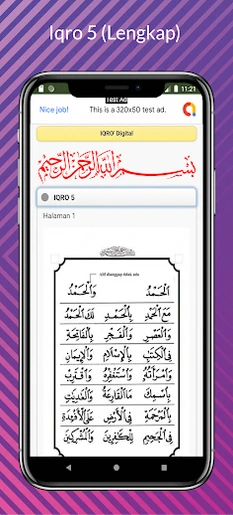 Iqro 5 (Lengkap)
11:21
Test Ad
Nice job!
This is a 320x50 test ad.
IQRO' Digital
بِسْمِ اللَّهِ الرَّحْمَنِ الرَّحِيمِ
IQRO 5
Halaman 1
اَلْحَمْدُ وَالْحَمْدُ
مَعَ الْحَمْدِ بِالْحَمْدِ لَكَ الْحَمْدُ
وَالْعَصْرِ وَالْفَجْرِ بِالْفَاتِحَةِ
فِى الْكِتٰبِ بِالْاِسْلَامِ وَالْاِيْمَانِ
وَامْرَاَتُهُ وَاسْتَغْفِرْهُ وَاقْتَرِبْ
كَالْفَرَاشِ مَاالْقَارِعَةُ وَالْعٰدِيٰتِ
بِالْمَرْحَمَةِ فِى الْاَرْضِ عَلَى الْاَفْئِدَةِ
فِى الْجَحِيْمِ لِلْكٰفِرِيْنَ وَالْمُشْرِكِيْنَ